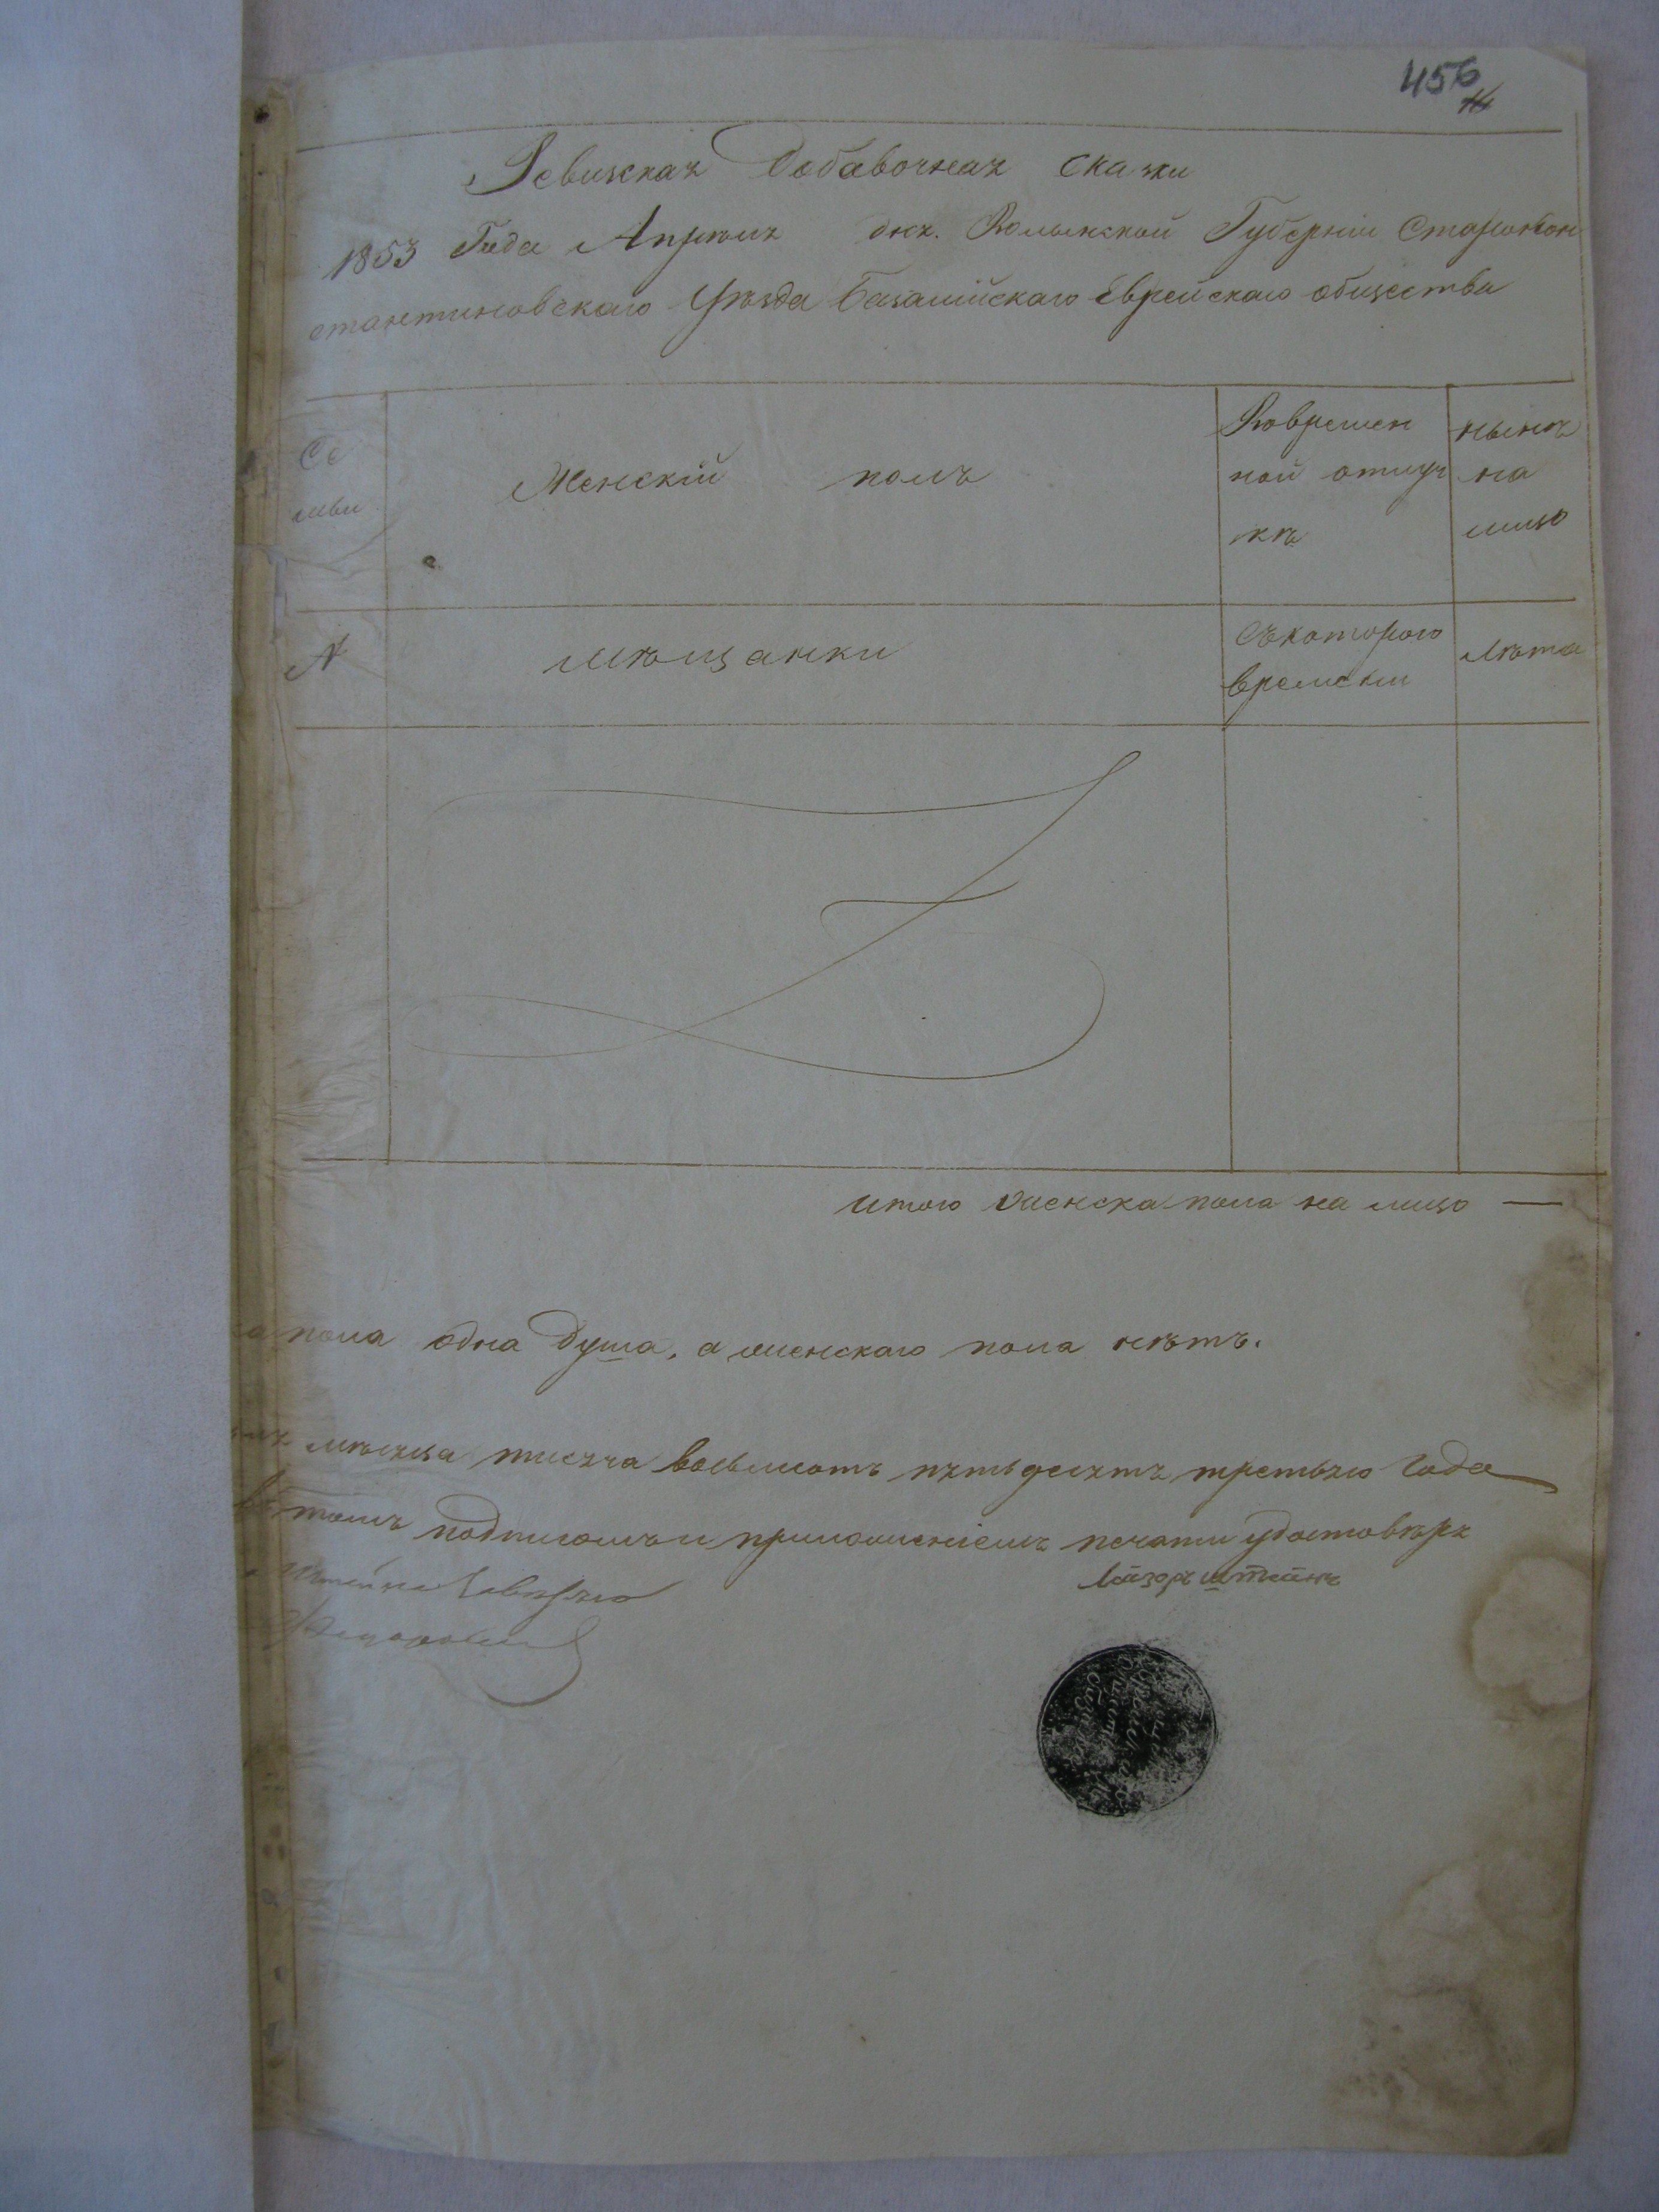 456
Ревизская Добавочная Сказки
1853 Года Апреля дня. Волынской Губерніи Старокон
стантиновскаго Уѣзда Базалійскаго Еврейскаго общества
Се
мьи
Женскій полъ
Вовремен
ной отлуч
кѣ
нынѣ
на
лицо
№
мѣщанки
Съкоторого
времени
Лѣта
итого женска пола на лицо —
пола одна душа, а женскаго пола нѣтъ.
мѣсяца тисяча восьмсотъ пятьдесятъ третьяго Года
томъ подписомъ и приложеніемъ печати удостовѣря
Лейзоръ штейнъ